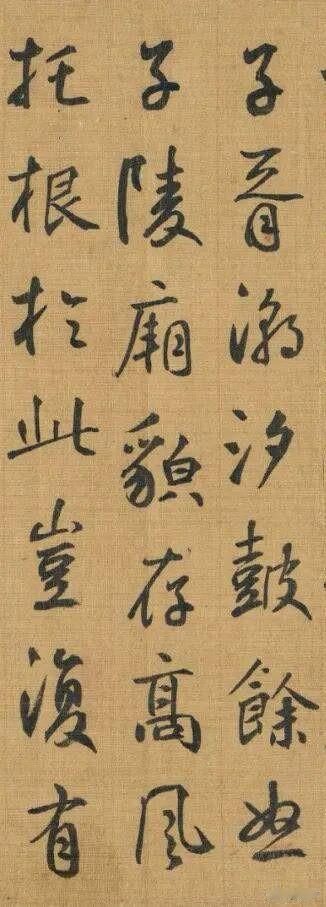 子胥潮汐鼓餘怒
子陵廟貌存高風
托根於此豈復有